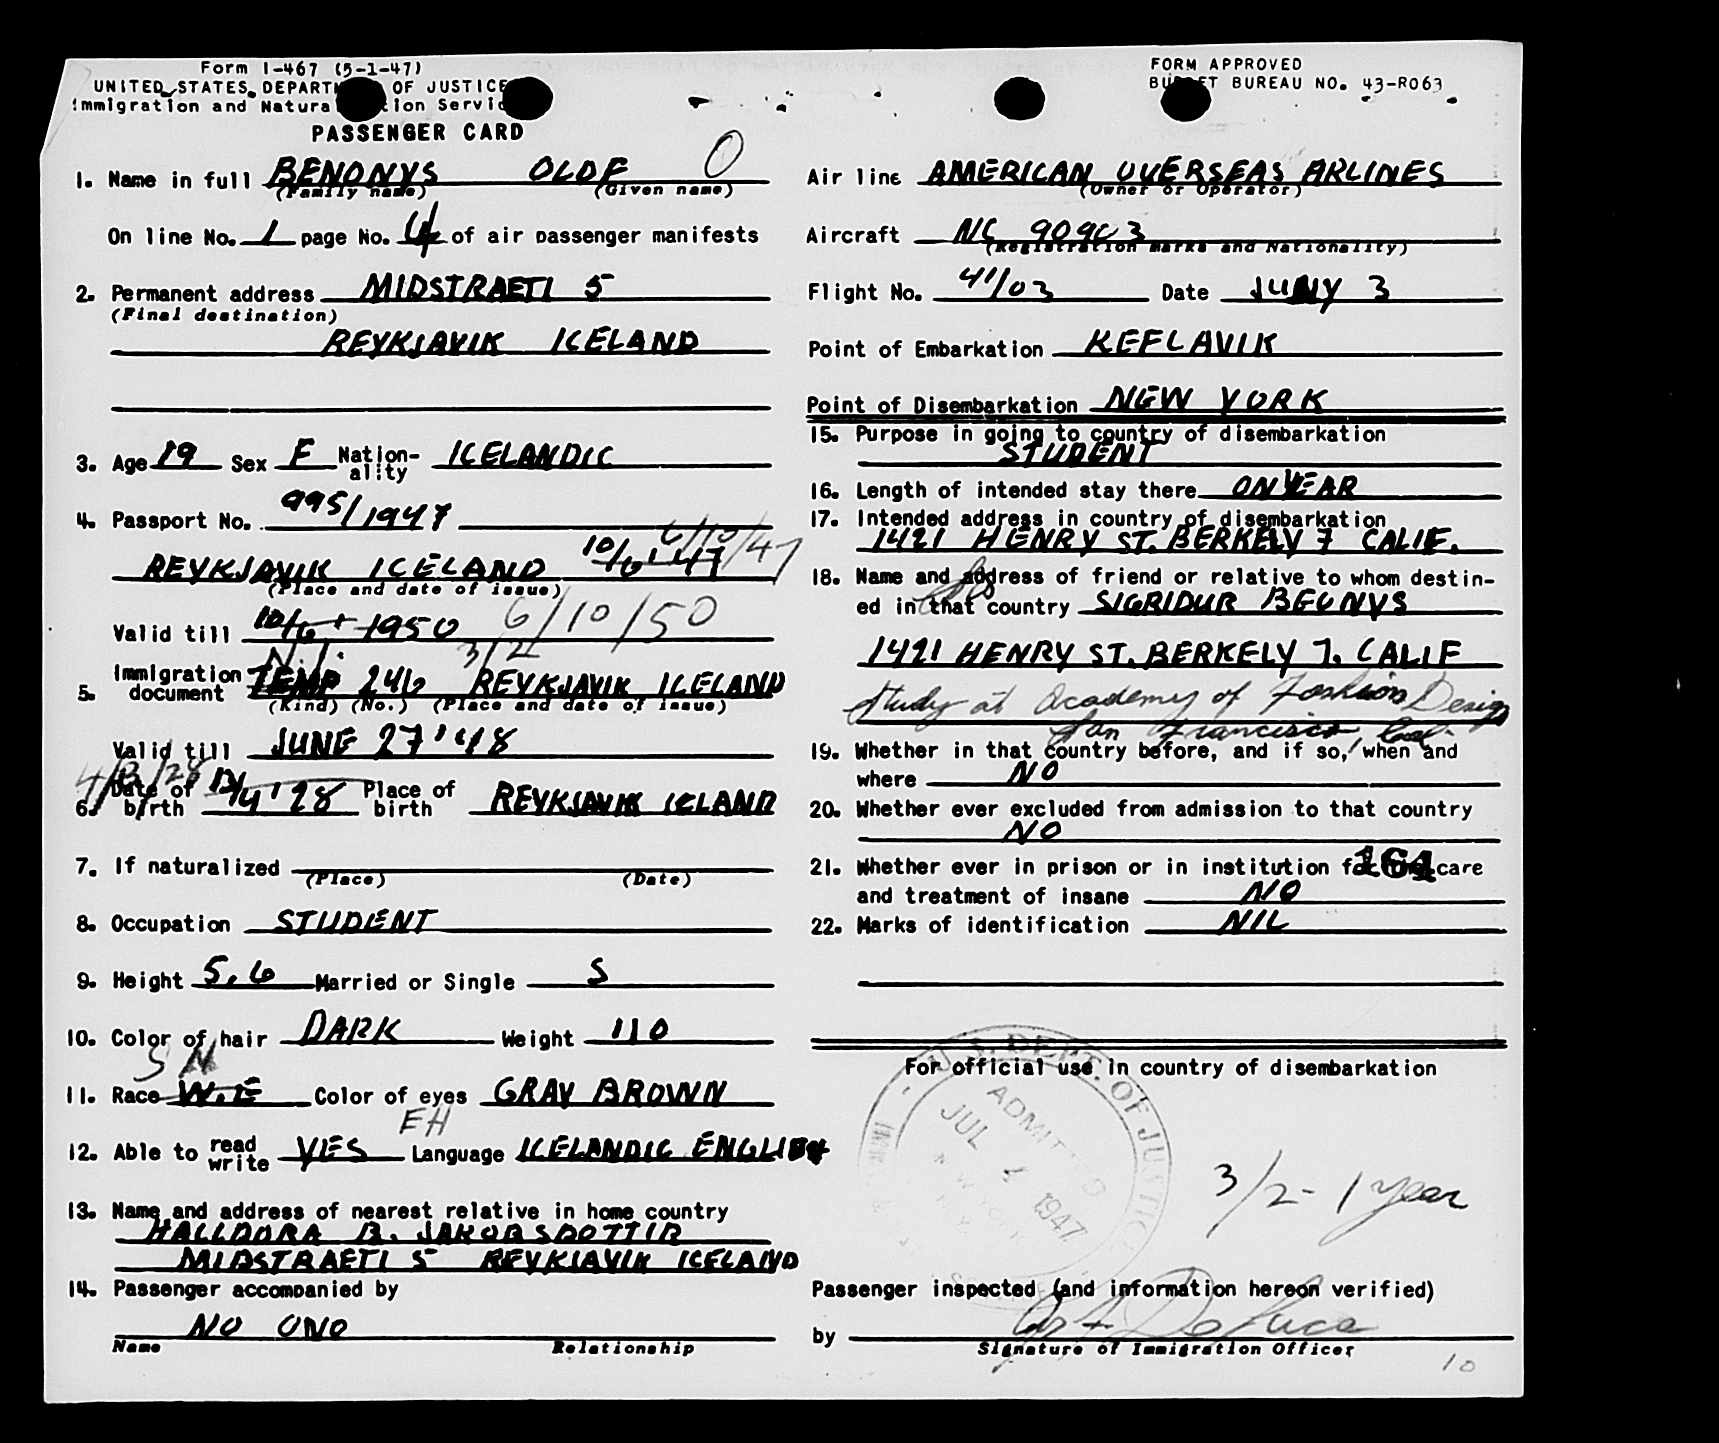 Form I-467 (5-1-47)
UNITED STATES DEPARTM OF JUSTICE
Immigration and Natura tion Servic
PASSENGER CARD
FORM APPROVED
BU ET BUREAU NO. 43-R063
1. Name in full BENONYS OLOF O
(Family name) (Given name)
On line No. 1 page No. 4 of air passenger manifests
2. Permanent address MIDSTRAETI 5
(Final destination)
REYKJAVIK ICELAND
3. Age 19 Sex F Nation-ality ICELANDIC
4. Passport No. 995/1947
6/10/47
REYKJAVIK ICELAND 10/6 '47
(Place and date of issue)
Valid till 10/6 + 1950 6/10/50
N.I. 3/2
5. Immigration document TEMP 246 REYKJAVIK ICELAND
(Kind) (No.) (Place and date of issue)
Valid till JUNE 27 '48
4/13/28
6. Date of birth 13/4 '28 Place of birth REYKJAVIK ICLAND
7. If naturalized
(Place) (Date)
8. Occupation STUDENT
9. Height 5,6 Married or Single S
10. Color of hair DARK Weight 110
S N
11. Race W.E Color of eyes GRAY BROWN
EH
12. Able to read write YES Language ICELANDIC ENGLISH
13. Name and address of nearest relative in home country
HALLDORA B. JAKOBSDOTTIR
MIDSTRAETI 5 REYKJAVIK ICELAND
14. Passenger accompanied by
NO ONO
Name Relationship
Air line AMERICAN OVERSEAS ARLINES
(Owner or Operator)
Aircraft NC 90903
(Registration marks and Nationality)
Flight No. 41/03 Date JULY 3
Point of Embarkation KEFLAVIK
Point of Disembarkation NEW YORK
15. Purpose in going to country of disembarkation
STUDENT
16. Length of intended stay there ON YEAR
17. Intended address in country of disembarkation
1421 HENRY ST. BERKELY 7 CALIF.
18. Name and address of friend or relative to whom destin-
ed in that country SIGRIDUR BEONYS
1421 HENRY ST. BERKELY 7. CALIF
Study at Academy of Fashion Design
San Francisco, Cal.
19. Whether in that country before, and if so, when and
where NO
20. Whether ever excluded from admission to that country
NO
21. Whether ever in prison or in institution for the care
164
and treatment of insane NO
22. Marks of identification NIL
For official use in country of disembarkation
U.S. DEPT. OF JUSTICE
ADMITTED
JUL 4 1947
NEW YORK
3/2 - 1 year
Passenger inspected (and information hereon verified)
by
Signature of Immigration Officer
10